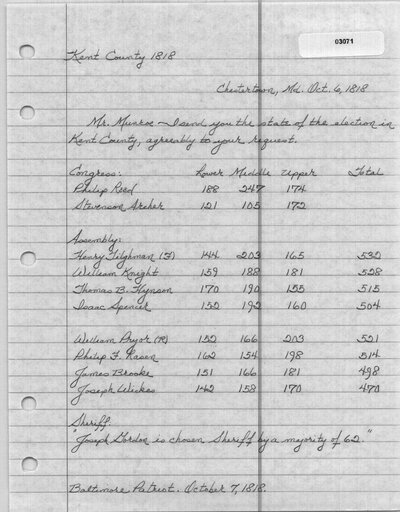 03071
Kent County 1818
Chestertown, Md. Oct. 6, 1818
Mr. Munroe - I send you the state of the election in
Kent County, agreeably to your request.
Congress: Lower Middle Upper Total
Philip Reed 188 247 174
Stevenson Archer 121 105 172
Assembly:
Henry Tilghman (F) 144 203 165 532
William Knight 159 188 181 528
Thomas B. Hynson 170 190 155 515
Isaac Spencer 152 192 160 504
William Pryor (R) 152 166 203 521
Philip F. Rasen 162 154 198 514
James Brooke 151 166 181 498
Joseph Wickes 142 158 170 470
Sheriff
"Joseph Gordon is chosen Sheriff by a majority of 62."
Baltimore Patriot. October 7, 1818.